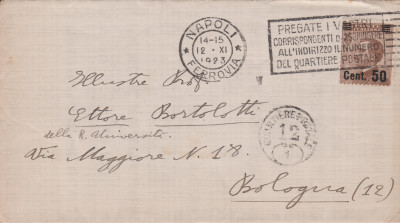 NAPOLI
14-15
12·XI
1923
FERROVIA
PREGATE I VOSTRI
CORRISPONDENTI DI AGGIUNGERE
ALL'INDIRIZZO IL NUMERO
DEL QUARTIERE POSTALE
Cent. 50
Illustre Prof
Ettore Bortolotti
della R. Università
Via Maggiore N. 18.
Bologna (12)
12
1